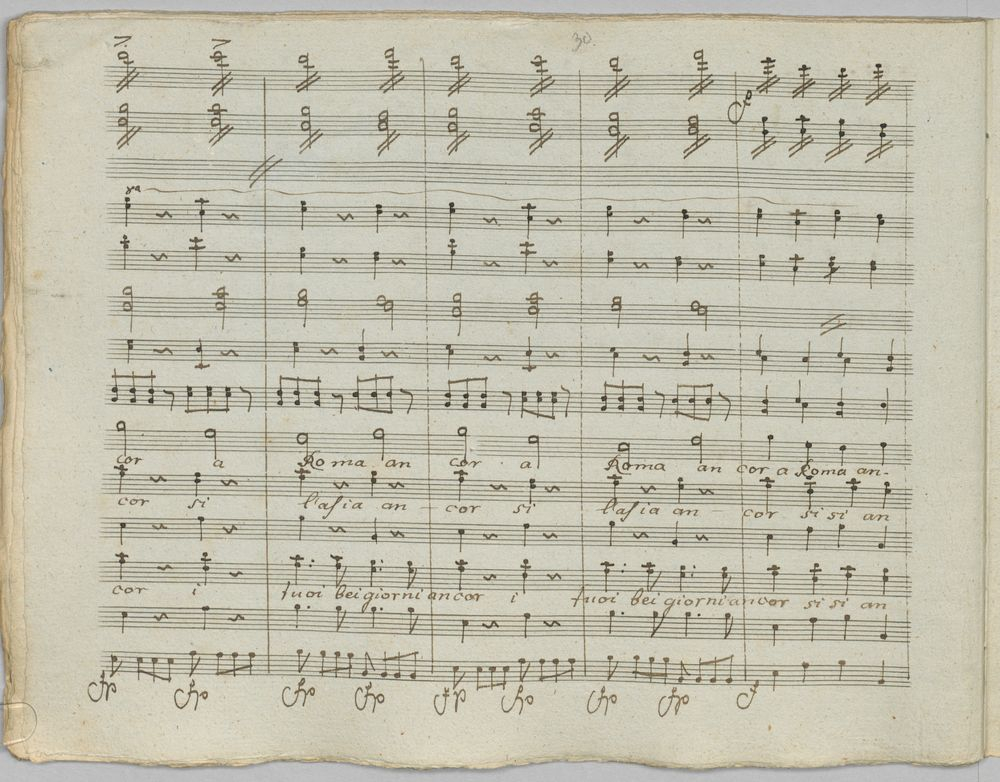 30.
8va
cor a Roma an cor a Roma an cor a Roma an-
cor si l'asia an - cor si l'asia an - cor si si an
cor i tuoi bei giorni ancor i tuoi bei giorni ancor si si an